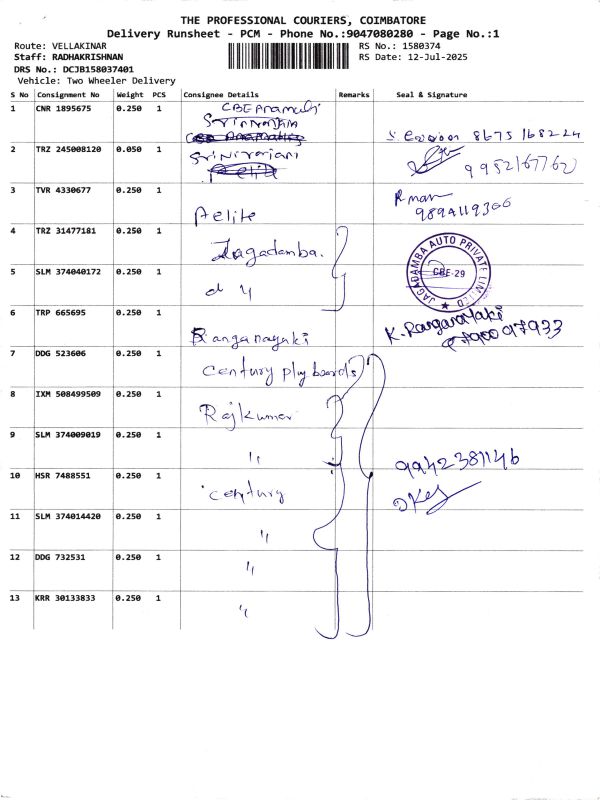 THE PROFESSIONAL COURIERS, COIMBATORE
Delivery Runsheet - PCM - Phone No.:9047080280 - Page No.:1
Route: VELLAKINAR
RS No.: 1580374
Staff: RADHAKRISHNAN
RS Date: 12-Jul-2025
DRS No.: DCJB158037401
Vehicle: Two Wheeler Delivery
S No Consignment No Weight PCS Consignee Details Remarks Seal & Signature
1 CNR 1895675 0.250 1
8675168224
2 TRZ 245008120 0.050 1
9952167760
3 TVR 4330677 0.250 1 Aelite
9894119366
4 TRZ 31477181 0.250 1 Jagadamba.
JAGADAMBA AUTO PRIVATE LIMITED
CBE-29
5 SLM 374040172 0.250 1 d "
6 TRP 665695 0.250 1 Ranganayaki K. Ranganayaki
7900097933
7 DDG 523606 0.250 1 Century ply boards
8 IXM 508499509 0.250 1 Rajkumar
9 SLM 374009019 0.250 1 "
9942381146
10 HSR 7488551 0.250 1 century
11 SLM 374014420 0.250 1 "
12 DDG 732531 0.250 1 "
13 KRR 30133833 0.250 1 "